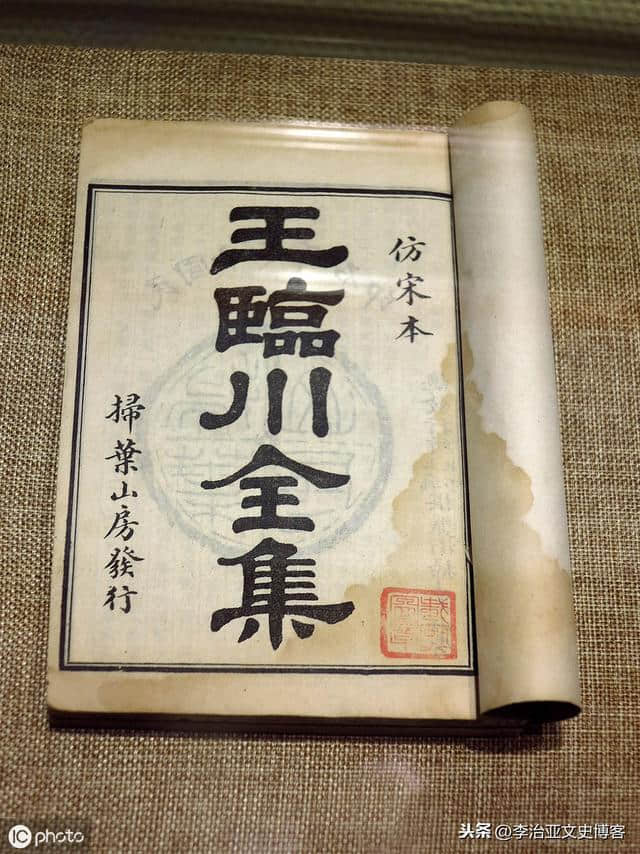 仿宋本
王臨川全集
掃葉山房發行
iC photo
头条 @李治亚文史博客